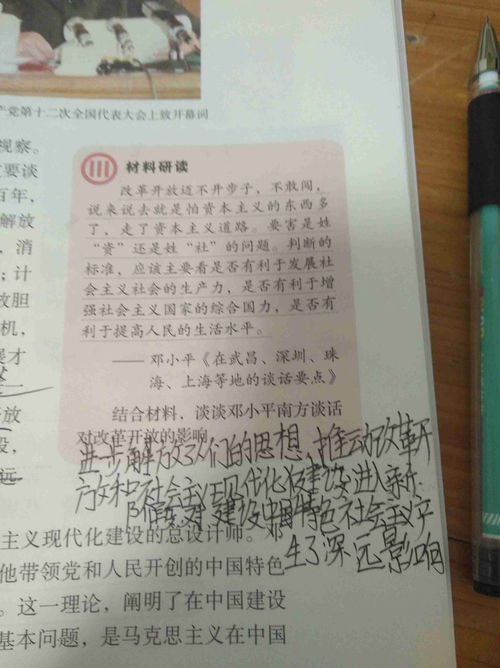 产党第十二次全国代表大会上致开幕词
视察。
要谈
百年，
解放
，消
；计
放胆
机，
展才
放
段，
远
材料研读
改革开放迈不开步子，不敢闯，
说来说去就是怕资本主义的东西多
了，走了资本主义道路。要害是姓
“资”还是姓“社”的问题。判断的
标准，应该主要看是否有利于发展社
会主义社会的生产力，是否有利于增
强社会主义国家的综合国力，是否有
利于提高人民的生活水平。
——邓小平《在武昌、深圳、珠
海、上海等地的谈话要点》
结合材料，谈谈邓小平南方谈话
对改革开放的影响
进步解放了人们的思想，推动改革开
放和社会主义现代化建设进入新
阶段，对建设中国特色社会主义产
生了深远影响
主义现代化建设的总设计师。邓
他带领党和人民开创的中国特色
。这一理论，阐明了在中国建设
基本问题，是马克思主义在中国